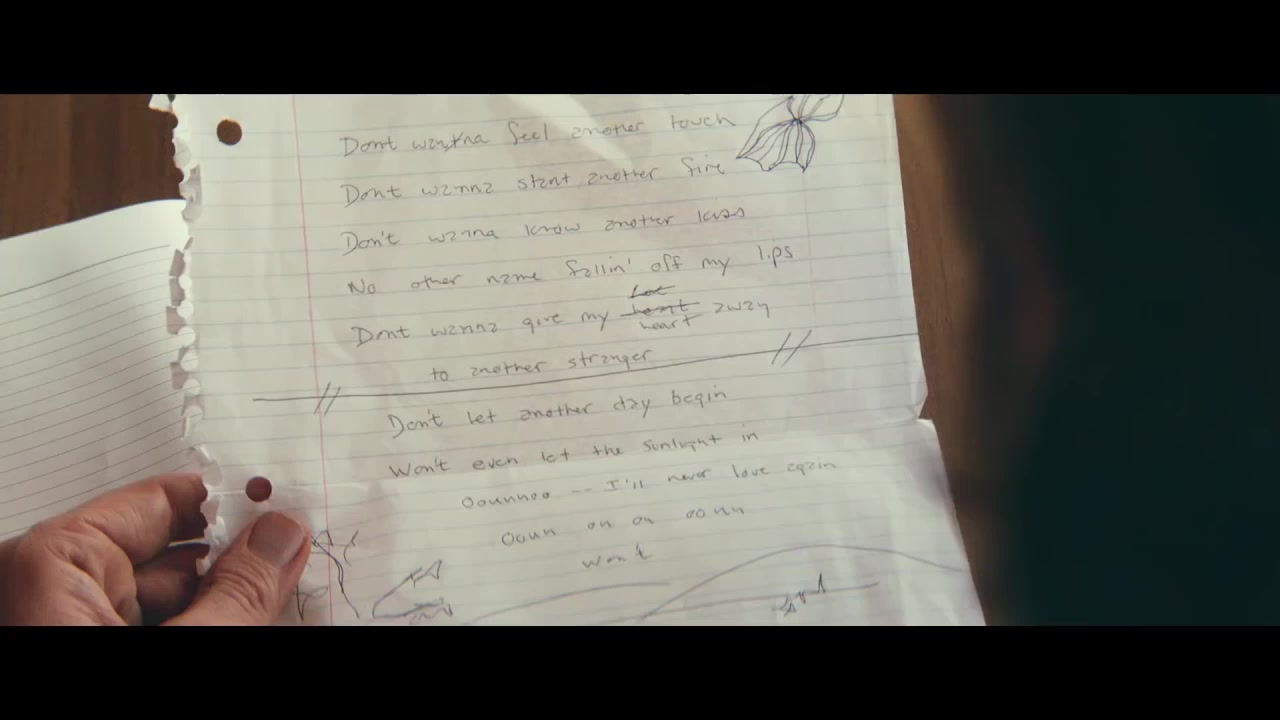 Dont wanna feel another touch
Dont wanna start another fire
Don't wanna know another kiss
No other name fallin' off my lips
Dont wanna give my heart away
to another stranger
Don't let another day begin
Won't even let the sunlight in
Oounnoo -- I'll never love again
Ooun on on oonn
won't